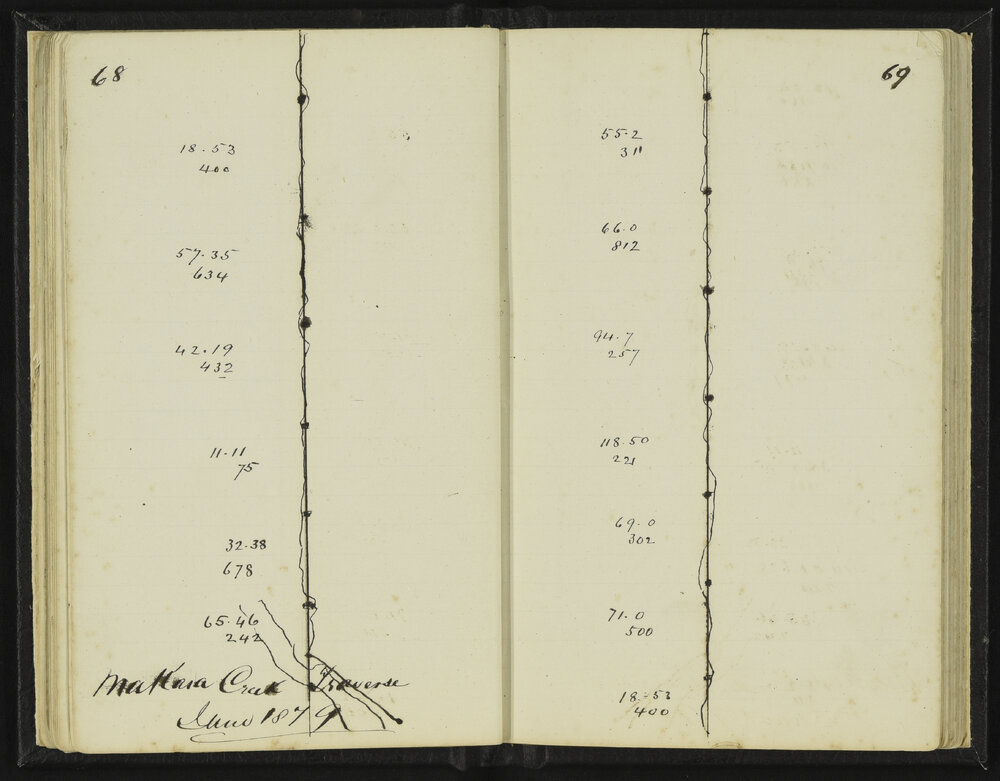 68
18.53
400
57.35
634
42.19
432
11.11
75
32.38
678
65.46
242
Creek Traverse
June 1879
69
55.2
311
66.0
812
94.7
257
118.50
221
69.0
302
71.0
500
18.53
400